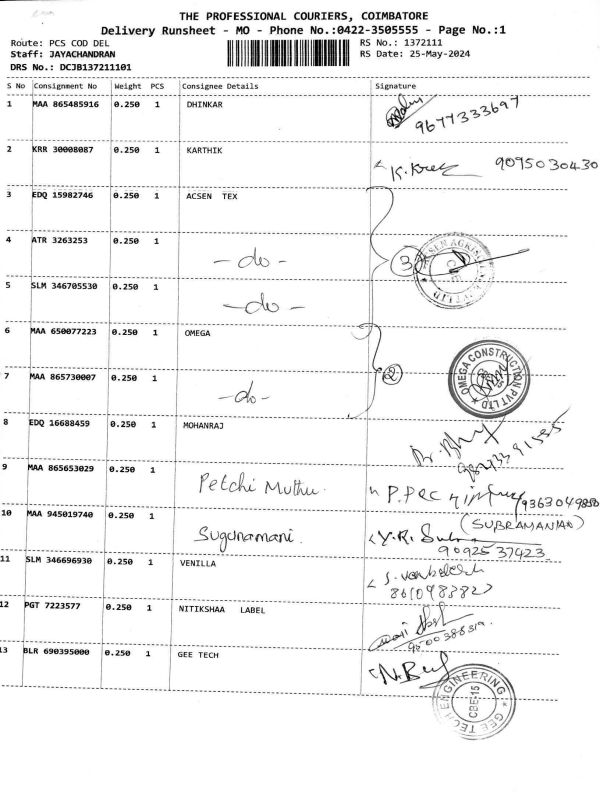 THE PROFESSIONAL COURIERS, COIMBATORE
Delivery Runsheet - MO - Phone No.:0422-3505555 - Page No.:1
Route: PCS COD DEL RS No.: 1372111
Staff: JAYACHANDRAN RS Date: 25-May-2024
DRS No.: DCJB137211101
S No Consignment No Weight PCS Consignee Details Signature
1 MAA 865485916 0.250 1 DHINKAR
9677333697
2 KRR 30008087 0.250 1 KARTHIK
K. 9095030430
3 EDQ 15982746 0.250 1 ACSEN TEX
4 ATR 3263253 0.250 1 -do- 3
5 SLM 346705530 0.250 1 -do-
6 MAA 650077223 0.250 1 OMEGA
OMEGA CONSTRUCTION PVT LTD
7 MAA 865730007 0.250 1 -do- 2
8 EDQ 16688459 0.250 1 MOHANRAJ
9 MAA 865653029 0.250 1 Petchi Muthu.
10 MAA 945019740 0.250 1 Sugunamani. Y.R.
(SUBRAMANIAN)
9092537423
11 SLM 346696930 0.250 1 VENILLA
12 PGT 7223577 0.250 1 NITIKSHAA LABEL
13 BLR 690395000 0.250 1 GEE TECH
GEE TECH ENGINEERING CBE-15